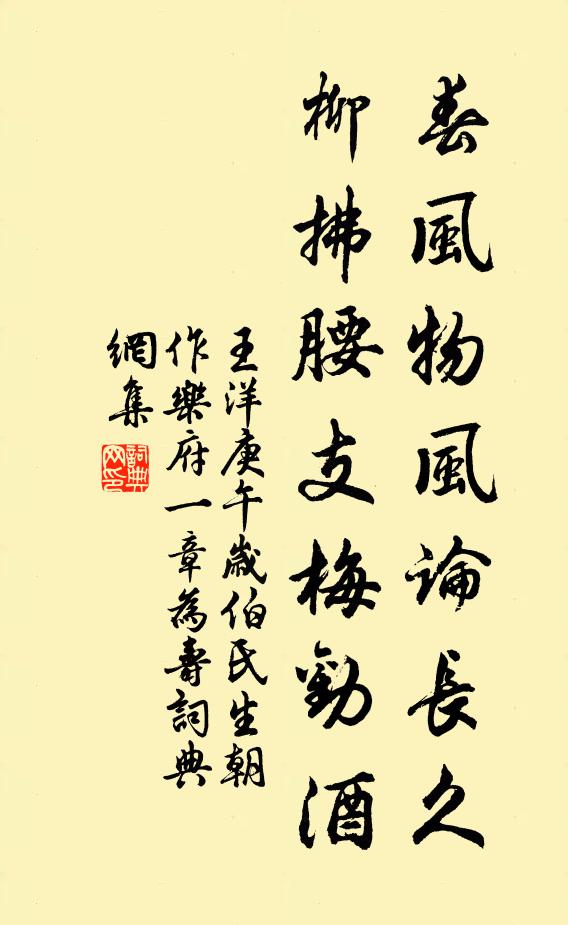 春風物風論長久
柳拂腰支梅勸酒
王洋庚午歲伯氏生朝
作樂府一章為壽詞典
網集
詞典
网印